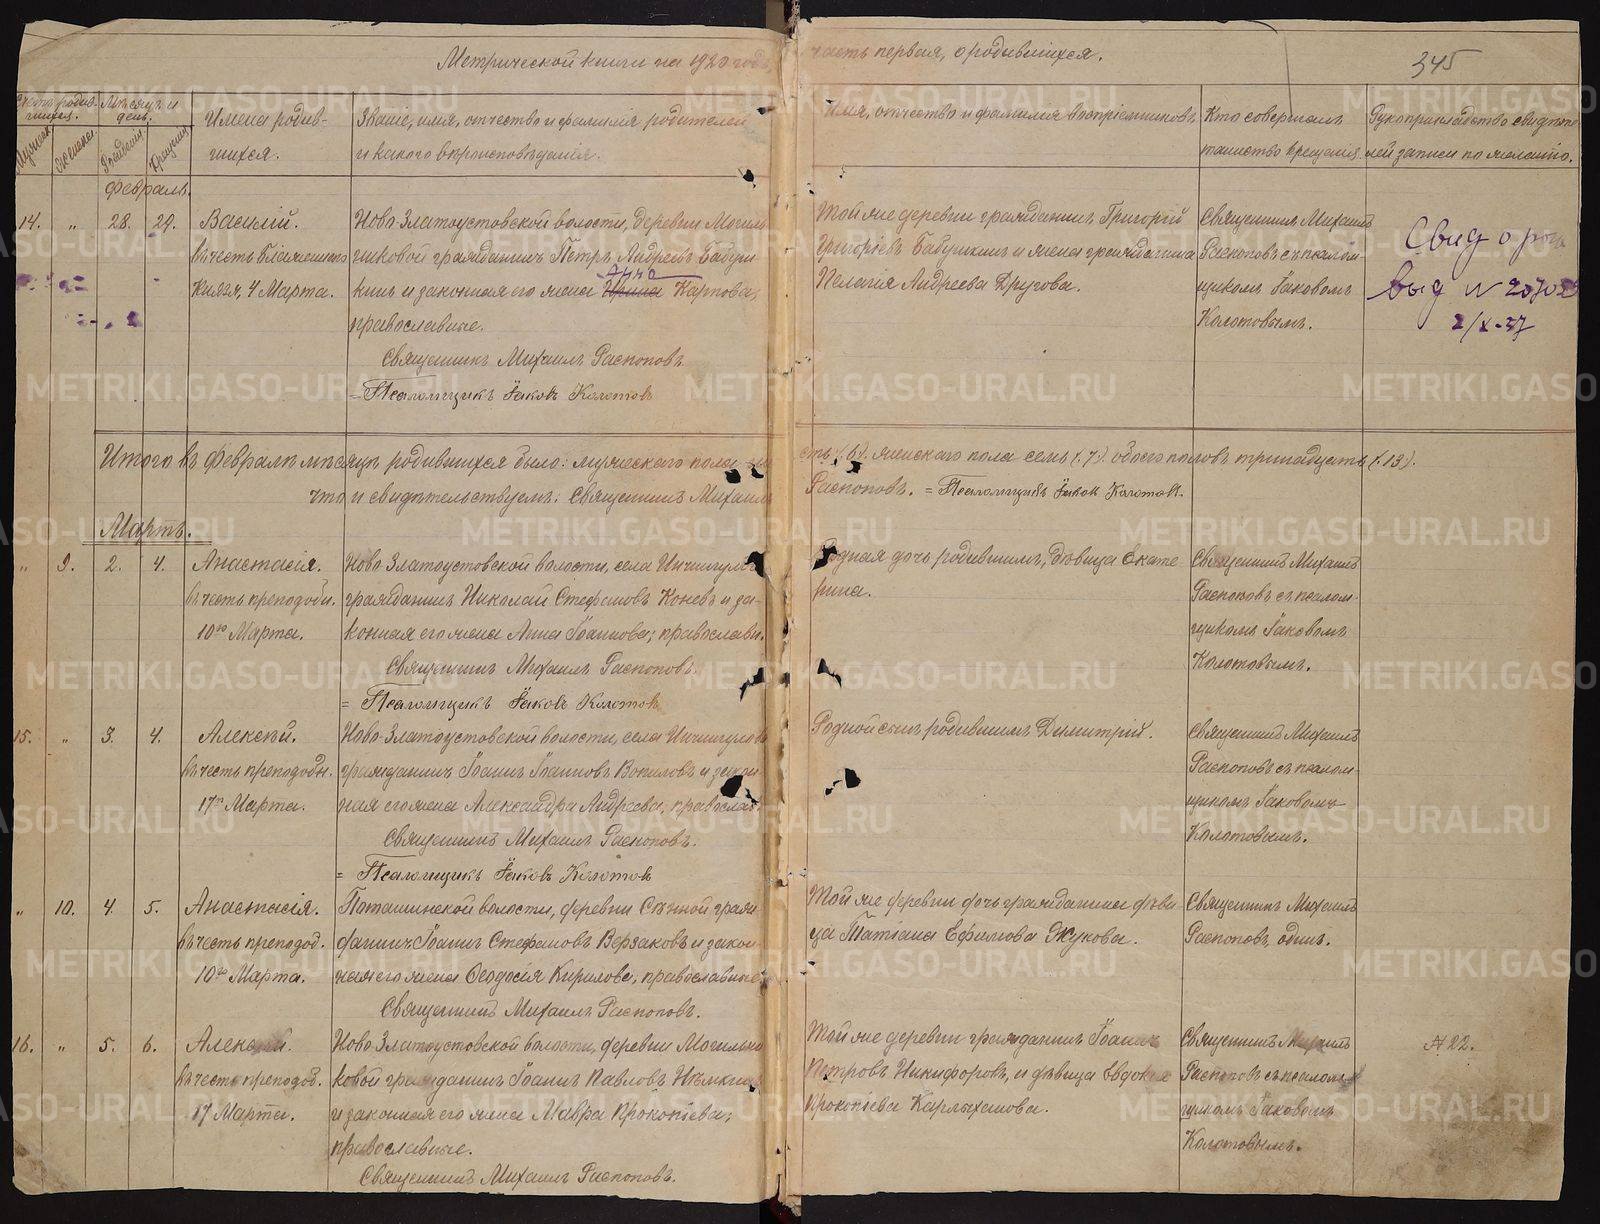 Метрической книги на 1920 годъ, часть первая, о родившихся.
345
Счетъ родив-
шихся.
Мѣсяцъ и
день.
Мужеска.
Женска.
Рожденія.
Крещенія.
Имена родив-
шихся.
Званіе, имя, отчество и фамилія родителей
и какого вѣроисповѣданія.
Имя, отчество и фамилія воспріемниковъ.
Кто совершалъ
таинство крещенія.
Рукоприкладство свидѣте-
лей записи по желанію.
Февраль.
14. „ 28. 29. Василій.
въ честь Благовѣрнаго
Князя, 4 Марта.
Ново Златоустовской волости, деревни Могиль-
никовой гражданинъ Петръ Андреевъ Бабуш-
Анна
кинъ и законная его жена Ирина Карпова,
православные.
Священникъ Михаилъ Распоповъ.
= Псаломщикъ Іаковъ Колотовъ
Той же деревни гражданинъ Григорій
Григорьевъ Бабушкинъ и жена гражданина
Пелагія Андреева Другова.
Священникъ Михаилъ
Распоповъ съ псалом-
щикомъ Іаковомъ
Колотовымъ.
Свид о рож
выд N 20702
2/X-37
Итого въ Февралѣ мѣсяцѣ родившихся было: мужескаго пола ше
сть (6). женскаго пола семь (7). обоего половъ тринадцать (13).
что и свидѣтельствуемъ: Священникъ Михаилъ
Распоповъ. = Псаломщикъ Іаковъ Колотовъ.
Мартъ.
„ 9. 2. 4. Анастасія.
въ честь преподобн.
10го Марта.
Ново Златоустовской волости, села Ничкигулова
гражданинъ Николай Стефановъ Коневъ и за-
конная его жена Анна Іоаннова; православн.
Священникъ Михаилъ Распоповъ.
= Псаломщикъ Іаковъ Колотовъ
Родная дочь родившимъ, дѣвица Екате-
рина.
Священникъ Михаилъ
Распоповъ съ псалом-
щикомъ Іаковомъ
Колотовымъ.
15. „ 3. 4. Алексѣй.
въ честь преподобн.
17го Марта.
Ново-Златоустовской волости, села
гражданинъ Іоаннъ Іоанновъ Вопиловъ и закон-
ная его жена Александра Андреева, православ
Священникъ Михаилъ Распоповъ.
= Псаломщикъ Іаковъ Колотовъ
Родной сынъ родившимъ Димитрій.
Священникъ Михаилъ
Распоповъ съ псалом-
щикомъ Іаковомъ
Колотовымъ.
„ 10. 4. 5. Анастасія.
въ честь преподоб.
10го Марта.
Поташинской волости, деревни Сѣнной граж-
данинъ Іоаннъ Стефановъ Верзаковъ и закон-
ная его жена Ѳеодосія Кирилова, православные.
Священникъ Михаилъ Распоповъ.
Той же деревни дочь гражданина дѣви-
ца Татіана Ефимова Жукова.
Священникъ Михаилъ
Распоповъ, одинъ.
16. „ 5. 6. Алексѣй.
въ честь преподоб.
17 Марта.
Ново Златоустовской волости, деревни Могильни
ковой гражданинъ Іоаннъ Павловъ Нѣмкинъ
и законная его жена Мавра Прокопіева;
православные.
Священникъ Михаилъ Распоповъ.
Той же деревни гражданинъ Іоаннъ
Петровъ Никифоровъ, и дѣвица Евдокія
Прокопіева Карлыханова.
Священникъ Михаилъ
Распоповъ съ псалом-
щикомъ Іаковомъ
Колотовымъ.
№ 22.
METRIKI.GASO-URAL.RU